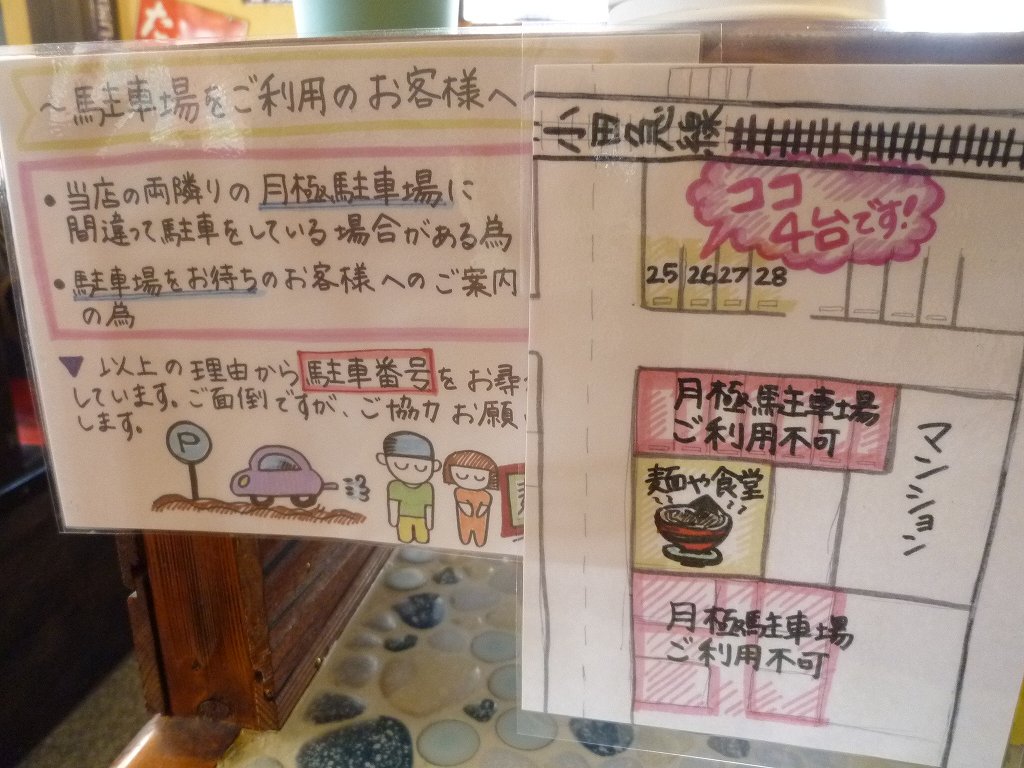 ～駐車場をご利用のお客様へ～
・当店の両隣りの月極駐車場に
間違って駐車をしている場合がある為
・駐車場をお待ちのお客様へのご案内
の為
▼以上の理由から駐車番号をお尋
しています。ご面倒ですが、ご協力お願
します。
P
小田急線
ココ
4台です!
25 26 27 28
月極駐車場
ご利用不可
マンション
麺や食堂
月極駐車場
ご利用不可